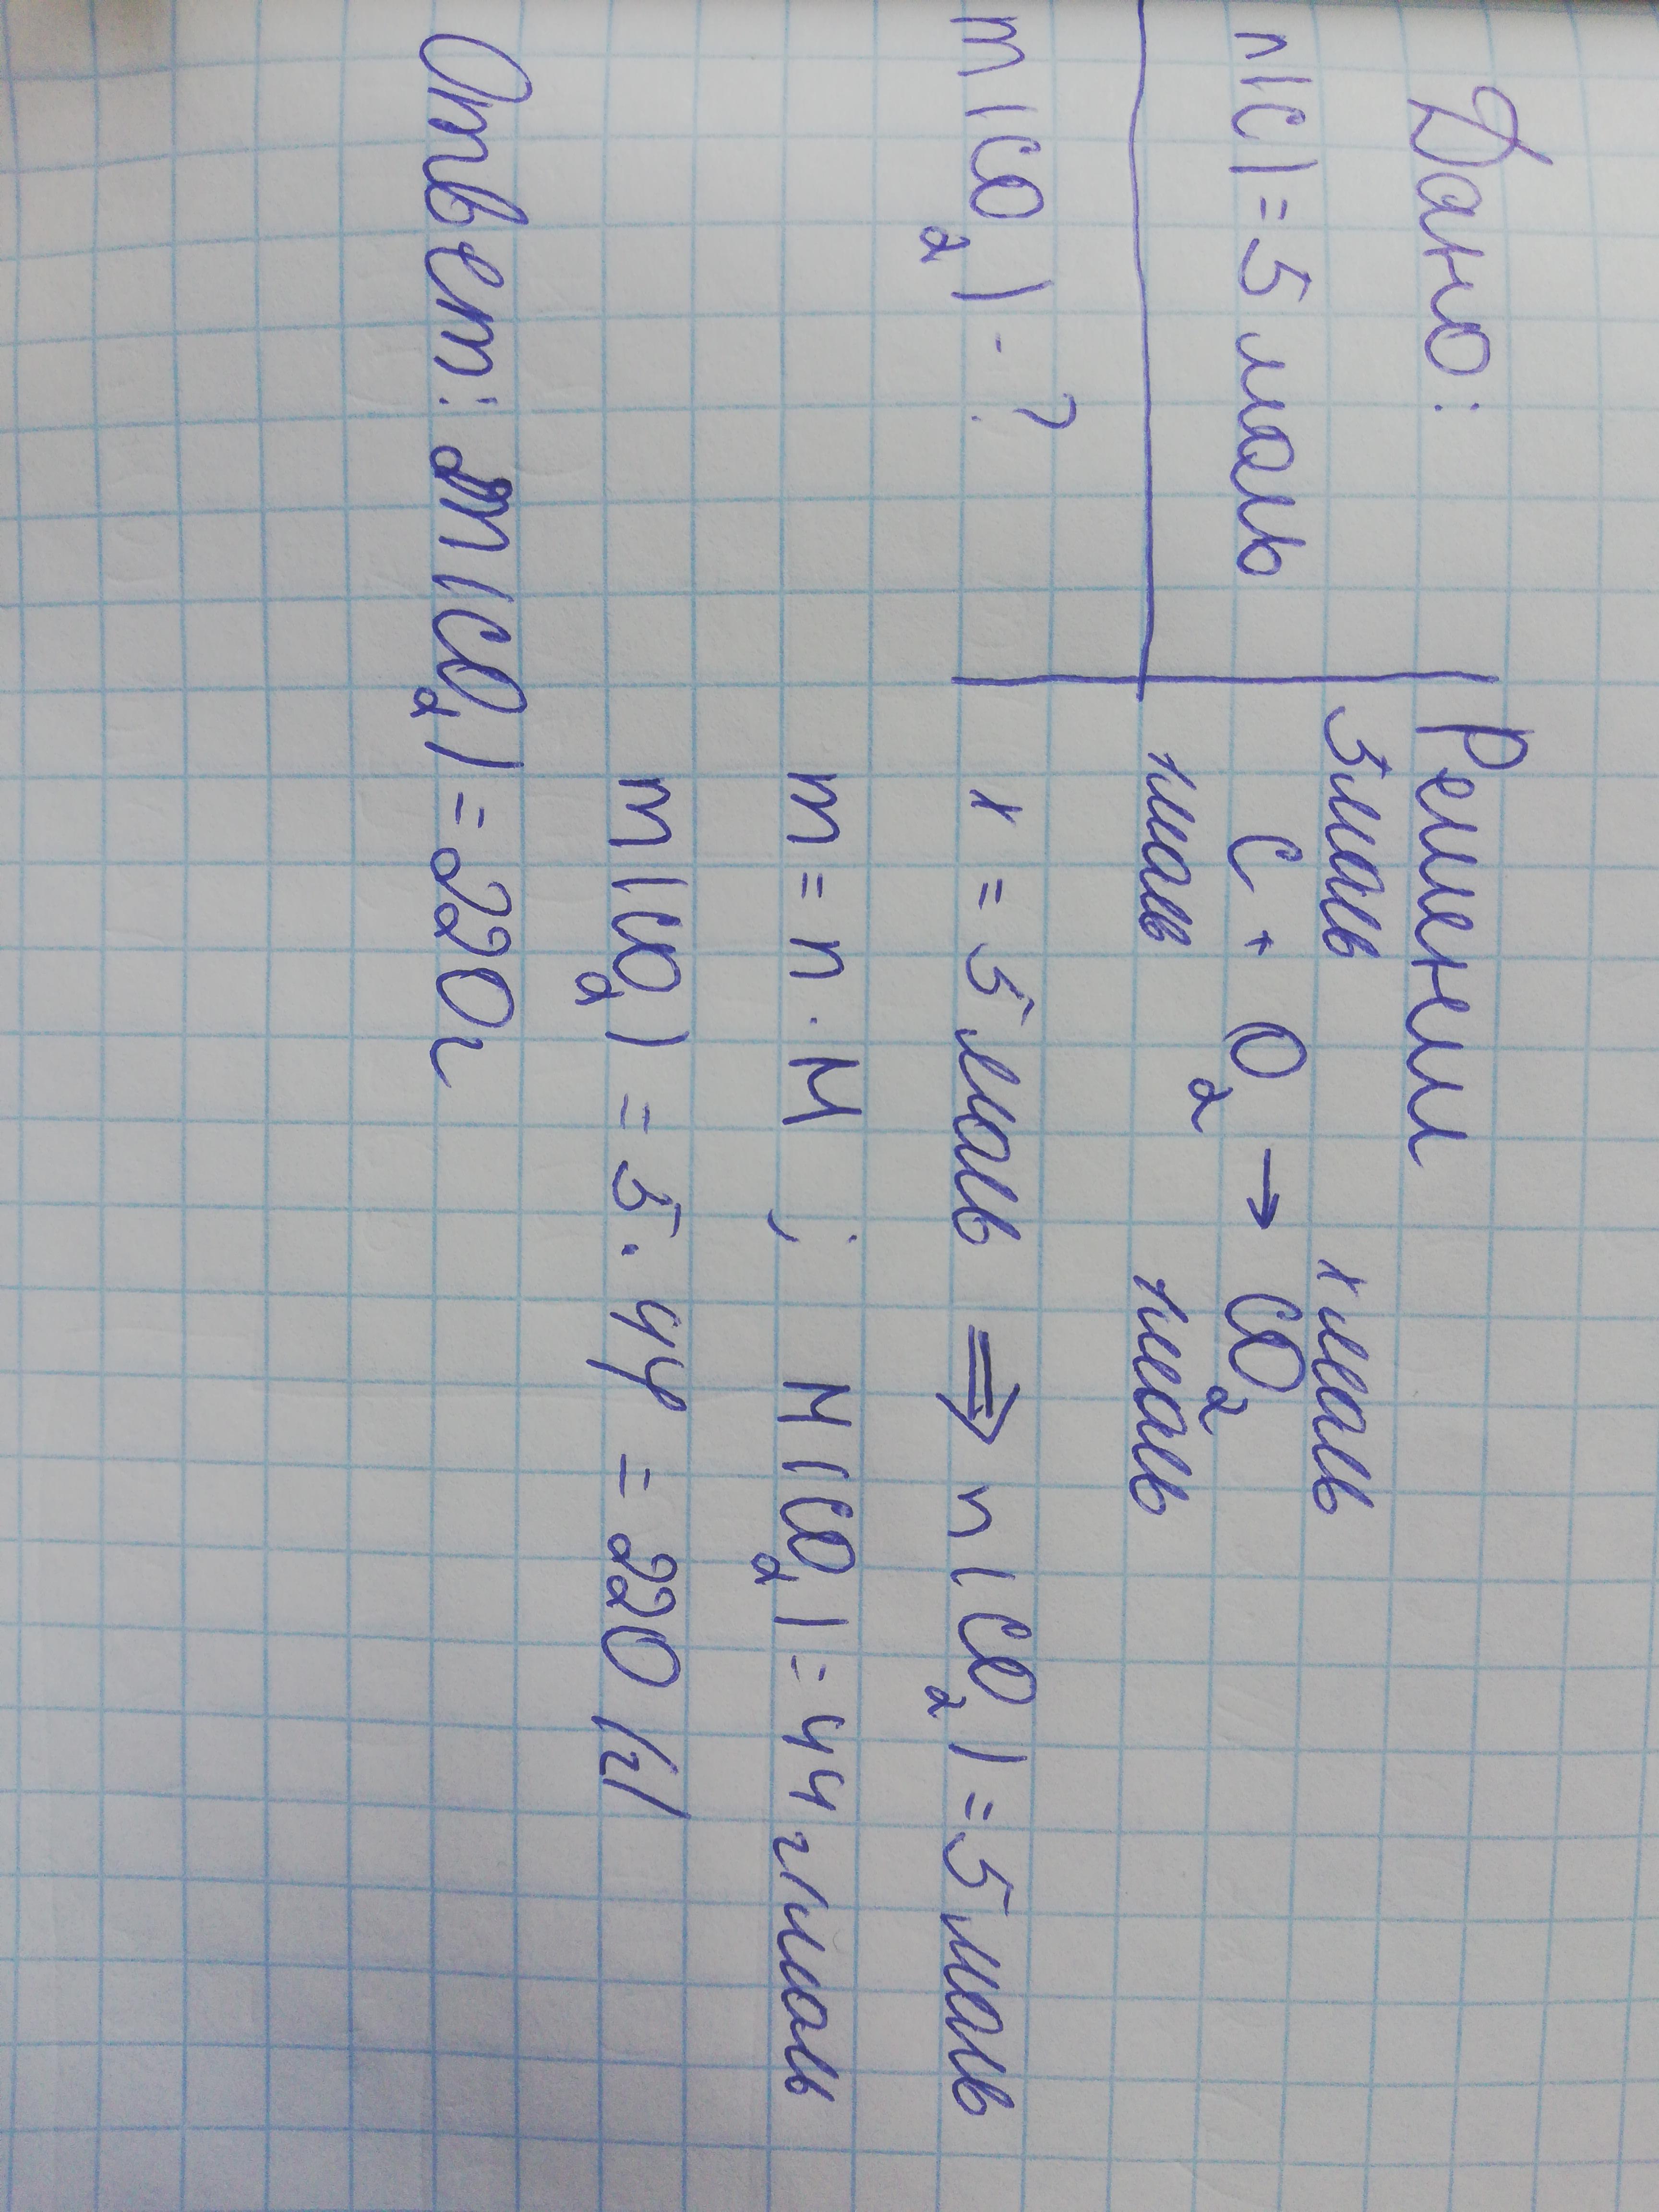 Дано:
n(C)=5 моль
m(CO2)-?
Решении
5моль x моль
C + O2 → CO2
1моль 1моль
x = 5 моль ⇒ n(CO2)=5 моль
m = n · M ; M(CO2)=44 г/моль
m(CO2) = 5 · 44 = 220 (г)
Ответ: m(CO2)=220г